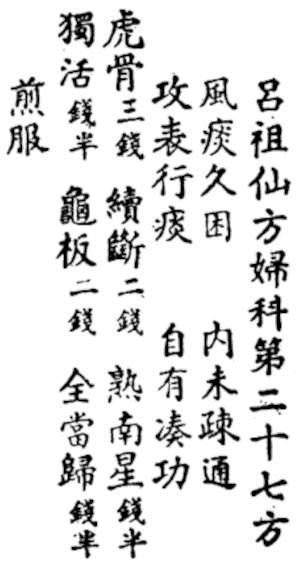 呂祖仙方婦科第二十七方
風痰久困　內未疎通
攻表行痰　自有湊功
虎骨三錢　續斷二錢　熟南星錢半
獨活錢半　龜板二錢　全當歸錢半
煎服